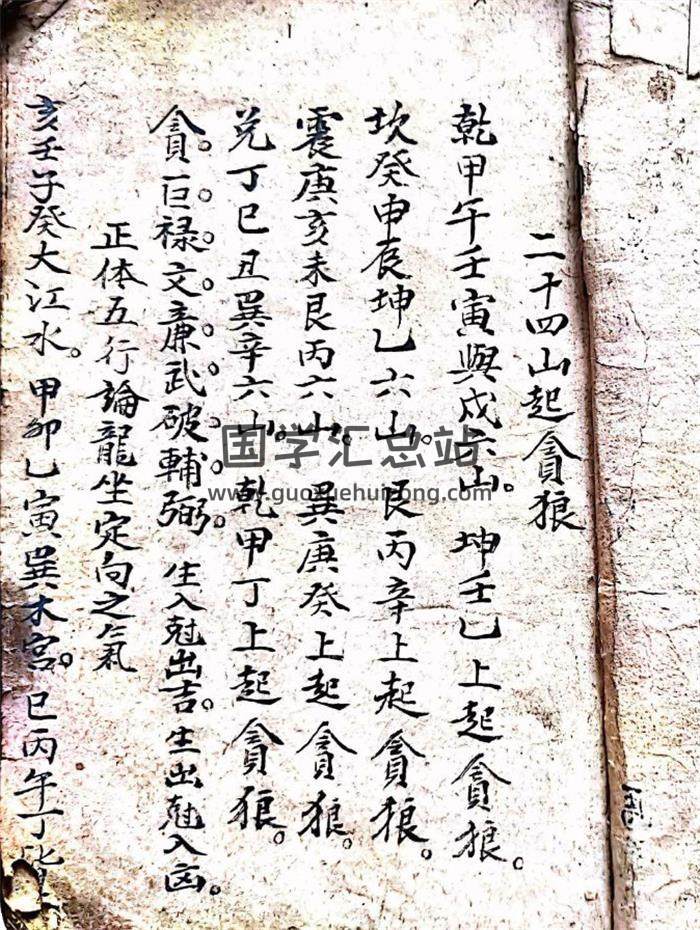 二十四山起貪狼
乾甲午壬寅與戌六山。坤壬乙上起貪狼。
坎癸申辰坤乙六山。艮丙辛上起貪狼。
震庚亥未艮丙六山。巽庚癸上起貪狼。
兌丁巳丑巽辛六山。乾甲丁上起貪狼。
貪。巨。禄。文。廉。武。破。輔。弼。生入尅出吉。生出尅入凶。
正体五行論龍坐定向之氣
亥壬子癸大江水。甲卯乙寅巽木宮。巳丙午丁
国学汇总站
www.guoxuehuizong.com